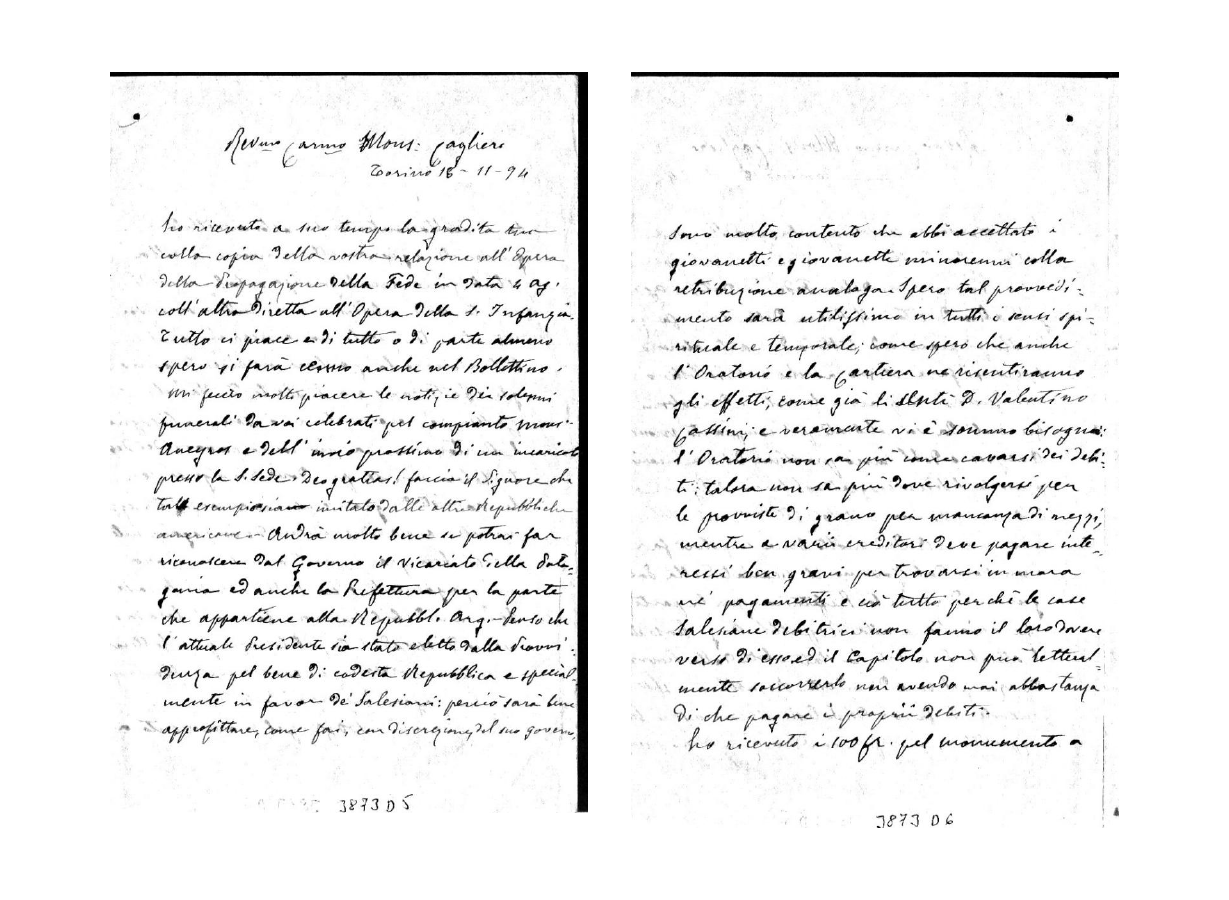 Rev.mo Carmo Mons: Cagliero
Torino 18-11-94
ho ricevuto a suo tempo la gradita tua
colla copia della vostra relazione all'Opera
della Propagazione della Fede in data 4 Ag.
coll'altra diretta all'Opera della S. Infanzia.
Tutto ci piace e di tutto o di parte almeno
spero si farà cenno anche nel Bollettino.
Mi fecero molto piacere le notizie dei solenni
funerali da voi celebrati pel compianto Mons.
Aneyros e dell'invio prossimo di un incaricato
presso la S. Sede. Deo gratias! faccia il Signore che
tale esempio sia imitato dalle altre Repubbliche
americane. Andrà molto bene se potrai far
riconoscere dal Governo il Vicariato della Pata-
gonia ed anche la Prefettura per la parte
che appartiene alla Repubbl. Arg. - Penso che
l'attuale Presidente sia stato eletto dalla Provvi-
denza pel bene di codesta Repubblica e special-
mente in favor de' Salesiani: perciò sarà bene
approfittare, come fai, con discrezione, del suo governo,
3873 D 5
Sono molto contento che abbi accettato i
giovanetti e giovanette minorenni colla
retribuzione analoga. Spero tal provvedi-
mento sarà utilissimo in tutti i sensi spi-
rituale e temporale; come spero che anche
l'Oratorio e la Cartiera ne risentiranno
gli effetti, come già li sentì D. Valentino
Cassini; e veramente vi è sommo bisogno:
l'Oratorio non sa più come cavarsi dei debi-
ti: talora non sa più dove rivolgersi per
le provviste di grano per mancanza di mezzi,
mentre a varii creditori deve pagare inte-
ressi ben gravi per trovarsi in mora
ne' pagamenti e ciò tutto perchè le case
Salesiane debitrici non fanno il loro dovere
verso di esso, ed il Capitolo non può letteral-
mente soccorrerlo non avendo mai abbastanza
di che pagare i proprii debiti.
ho ricevuto i 100 fr. pel monumento a
3873 D 6